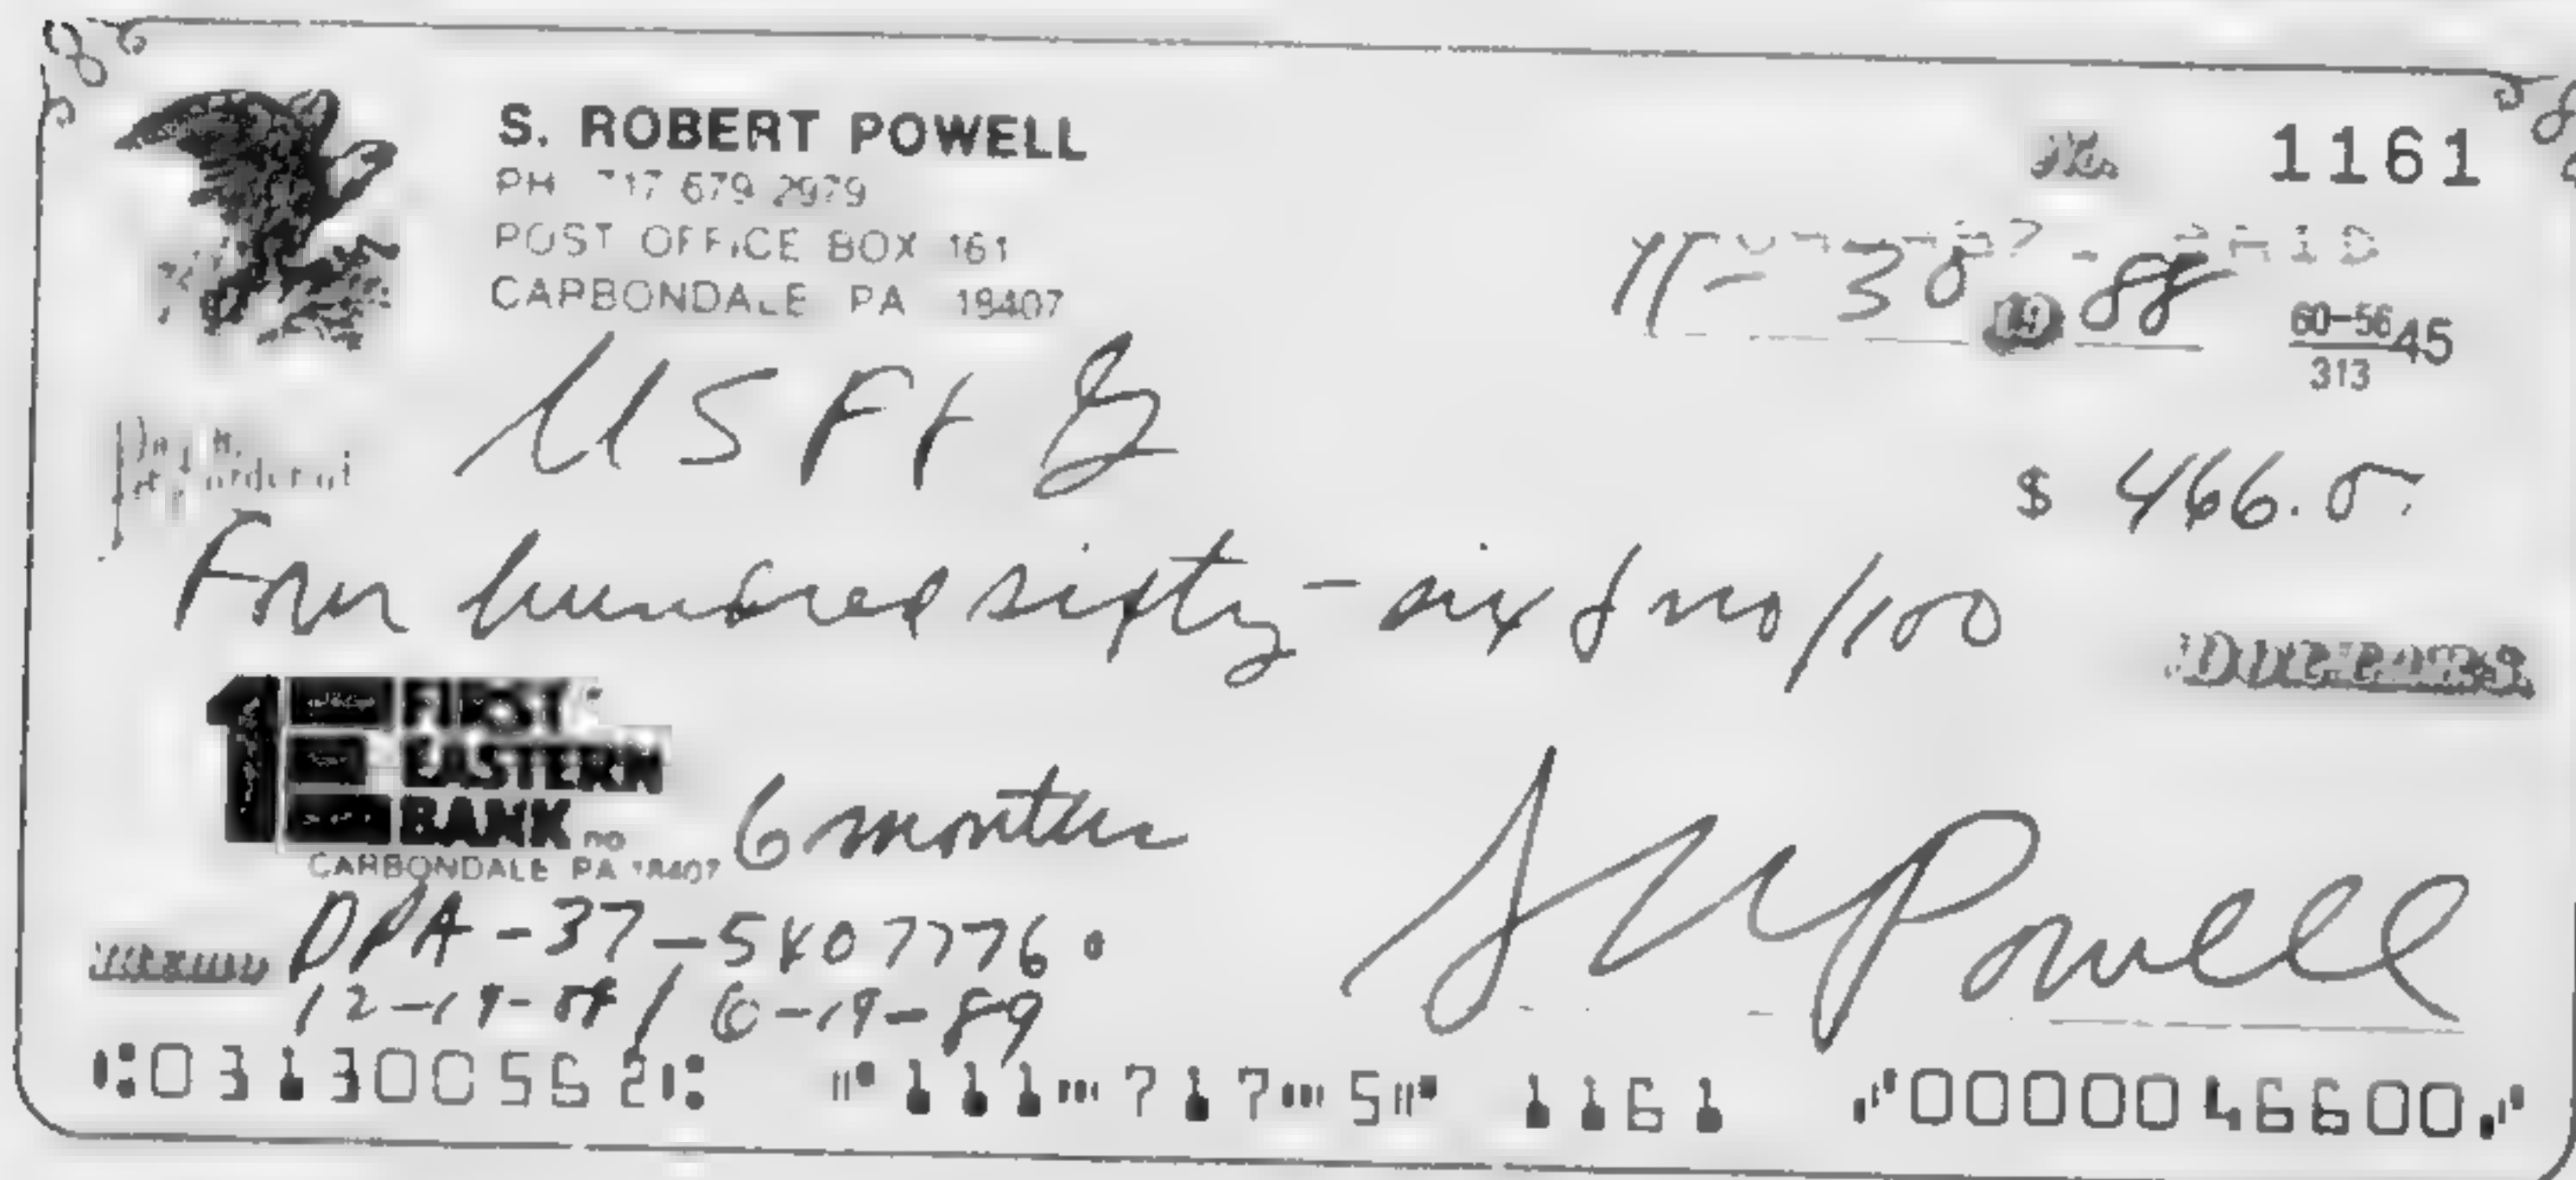 S. ROBERT POWELL
No. 1161
PH 717 679 2979
POST OFFICE BOX 161
CARBONDALE PA 18407
11-30 19 88
60-56 45
313
Pay to the order of USF&G
$ 466.00
Four hundred sixty-six & no/100 DOLLARS
1 FIRST
EASTERN
BANK na
CARBONDALE PA 18407
6 months
MEMO DPA-37-5407776
12-19-88 / 6-19-89
S R Powell
031300562 111 717 5 1161 0000046600